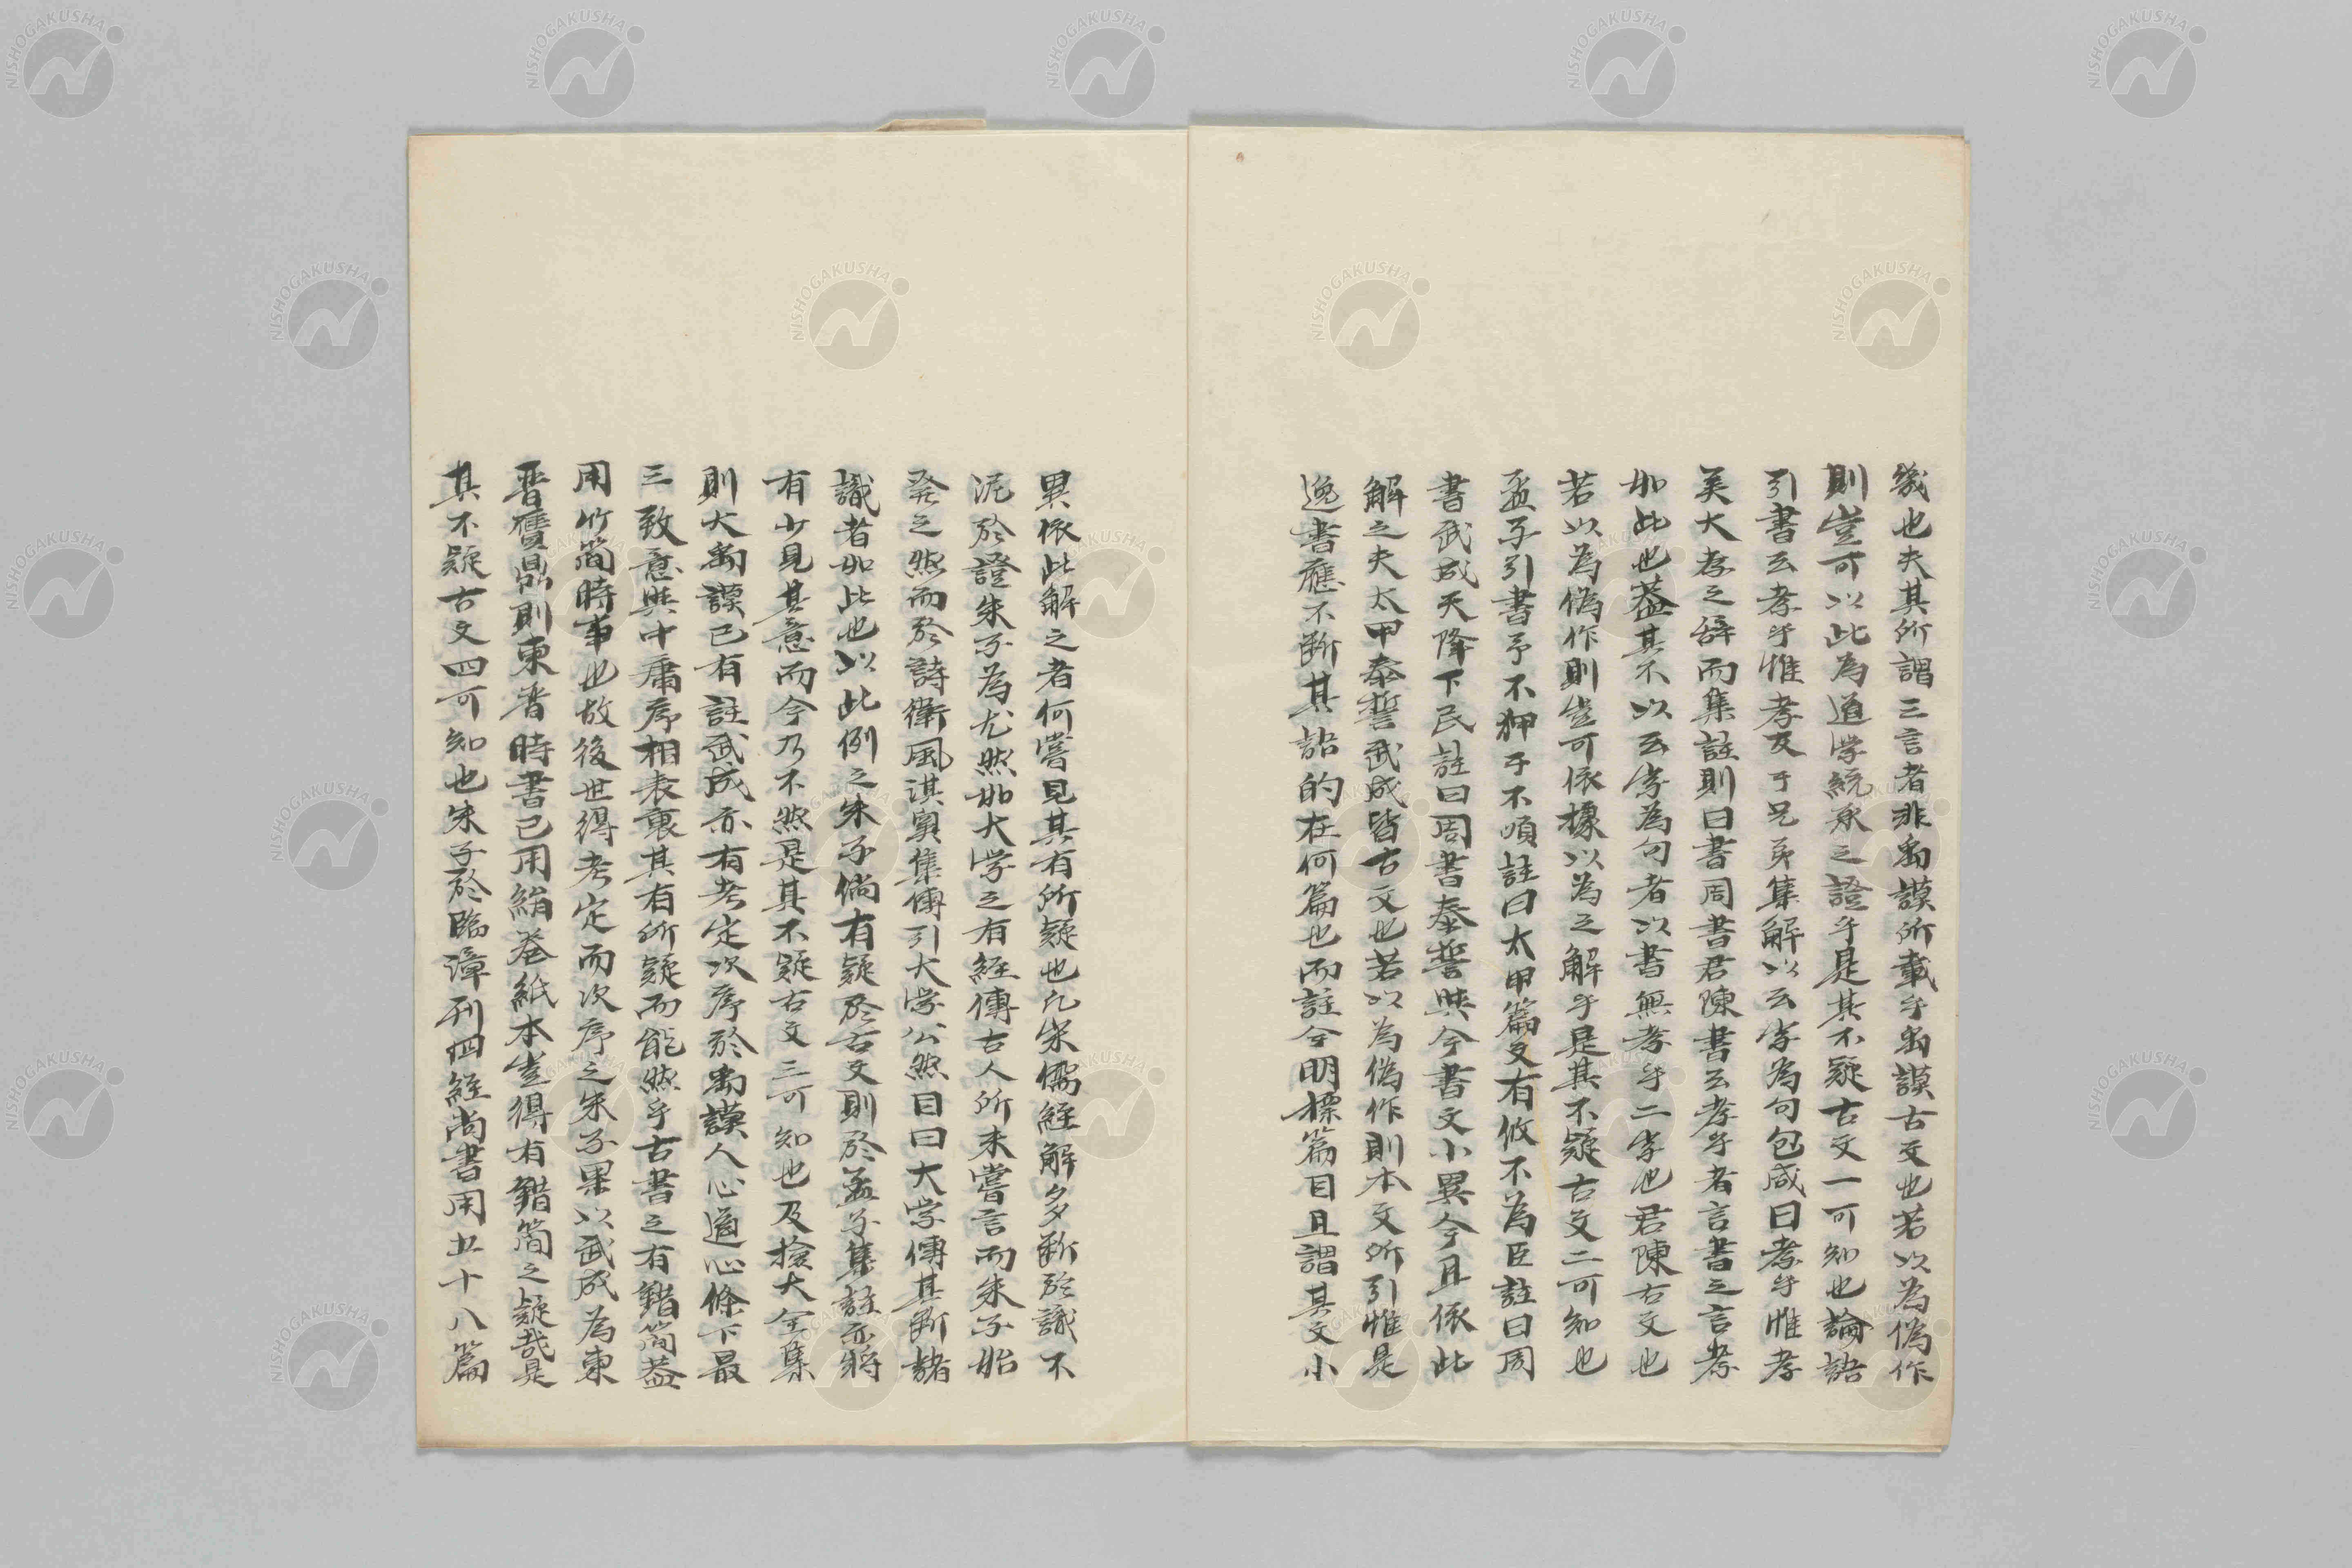 幾也夫其所謂三言者非禹謨所載乎禹謨古文也若以為偽作
則豈可以此為道学統承之證乎是其不疑古文一可知也論語
引書云孝乎惟孝友于兄弟集解以云孝為句包咸曰孝乎惟孝
美大孝之辞而集註則曰書周書君陳書云孝乎者言書之言孝
如此也葢其不以云孝為句者以書無孝乎二字也君陳古文也
若以為偽作則豈可依據以為之解乎是其不疑古文二可知也
孟子引書予不狎于不順註曰太甲篇文有攸不為臣註曰周
書武成天降下民註曰周書泰誓與今書文小異今且依此
解之夫太甲泰誓武成皆古文也若以為偽作則本文所引惟是
逸書應不断其詔的在何篇也而註今明標篇目且謂其文小
異依此解之者何嘗見其有所疑也凡宋儒経解多断於識不
泥於證朱子為尤然如大学之有経傳古人所未嘗言而朱子始
発之然而於詩衛風淇奥集傳引大学公然目曰大学傳其断諸
識者如此也以此例之朱子倘有疑於古文則於孟子集註亦将
有少見其意而今乃不然是其不疑古文三可知也及撿大全集
則大禹謨已有註武成亦有考定次序於禹謨人心道心條下最
三致意與中庸序相表裏其有所疑而能然乎古書之有錯簡葢
用竹簡時事也故後世得考定而次序之朱子果以武成為東
晋贋鼎則東晋時書已用絹巻紙本豈得有錯簡之疑哉是
其不疑古文四可知也朱子於臨漳刊四経尚書用五十八篇
NISHOGAKUSHA